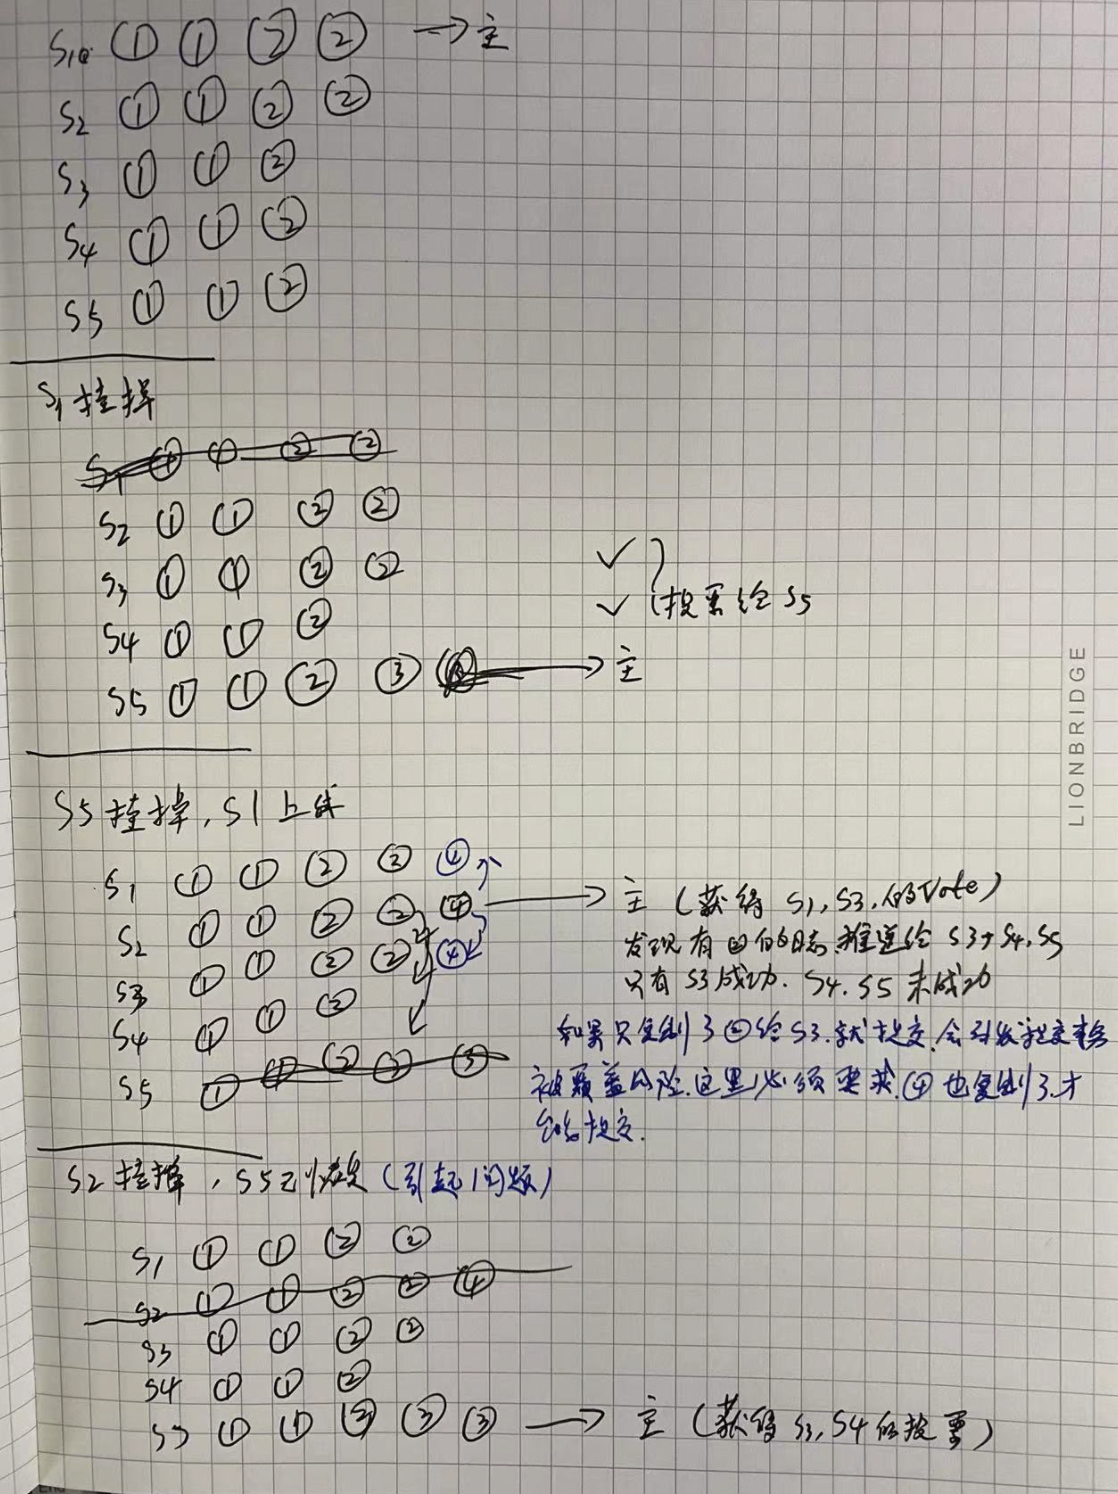 S1 ① ① ② ② → 主
S2 ① ① ② ②
S3 ① ① ②
S4 ① ① ②
S5 ① ① ②
S1 挂掉
S1 ① ① ② ②
S2 ① ① ② ②
S3 ① ① ② ② ✓
S4 ① ① ② ✓ 投票给 S5
S5 ① ① ② ③ → 主
S5 挂掉, S1 上线
S1 ① ① ② ② ④
S2 ① ① ② ② ④ → 主 (获得 S1, S3, 的Vote)
S3 ① ① ② ② ④ 发现有 的日志, 推送给 S3, S4, S5
只有 S3 成功. S4. S5 未成功
S4 ① ① ②
如果只复制了 ② 给 S3. 就提交, 会引发 提交
S5 ① ① ② ③
被覆盖风险. 这里必须要求, ④ 也复制了. 才
能提交.
S2 挂掉, S5 已恢复 (引起问题)
S1 ① ① ② ②
S2 ① ① ② ② ④
S3 ① ① ② ②
S4 ① ① ②
S5 ① ① ② ③ ③ → 主 (获得 S3, S4 的投票)
LIONBRIDGE